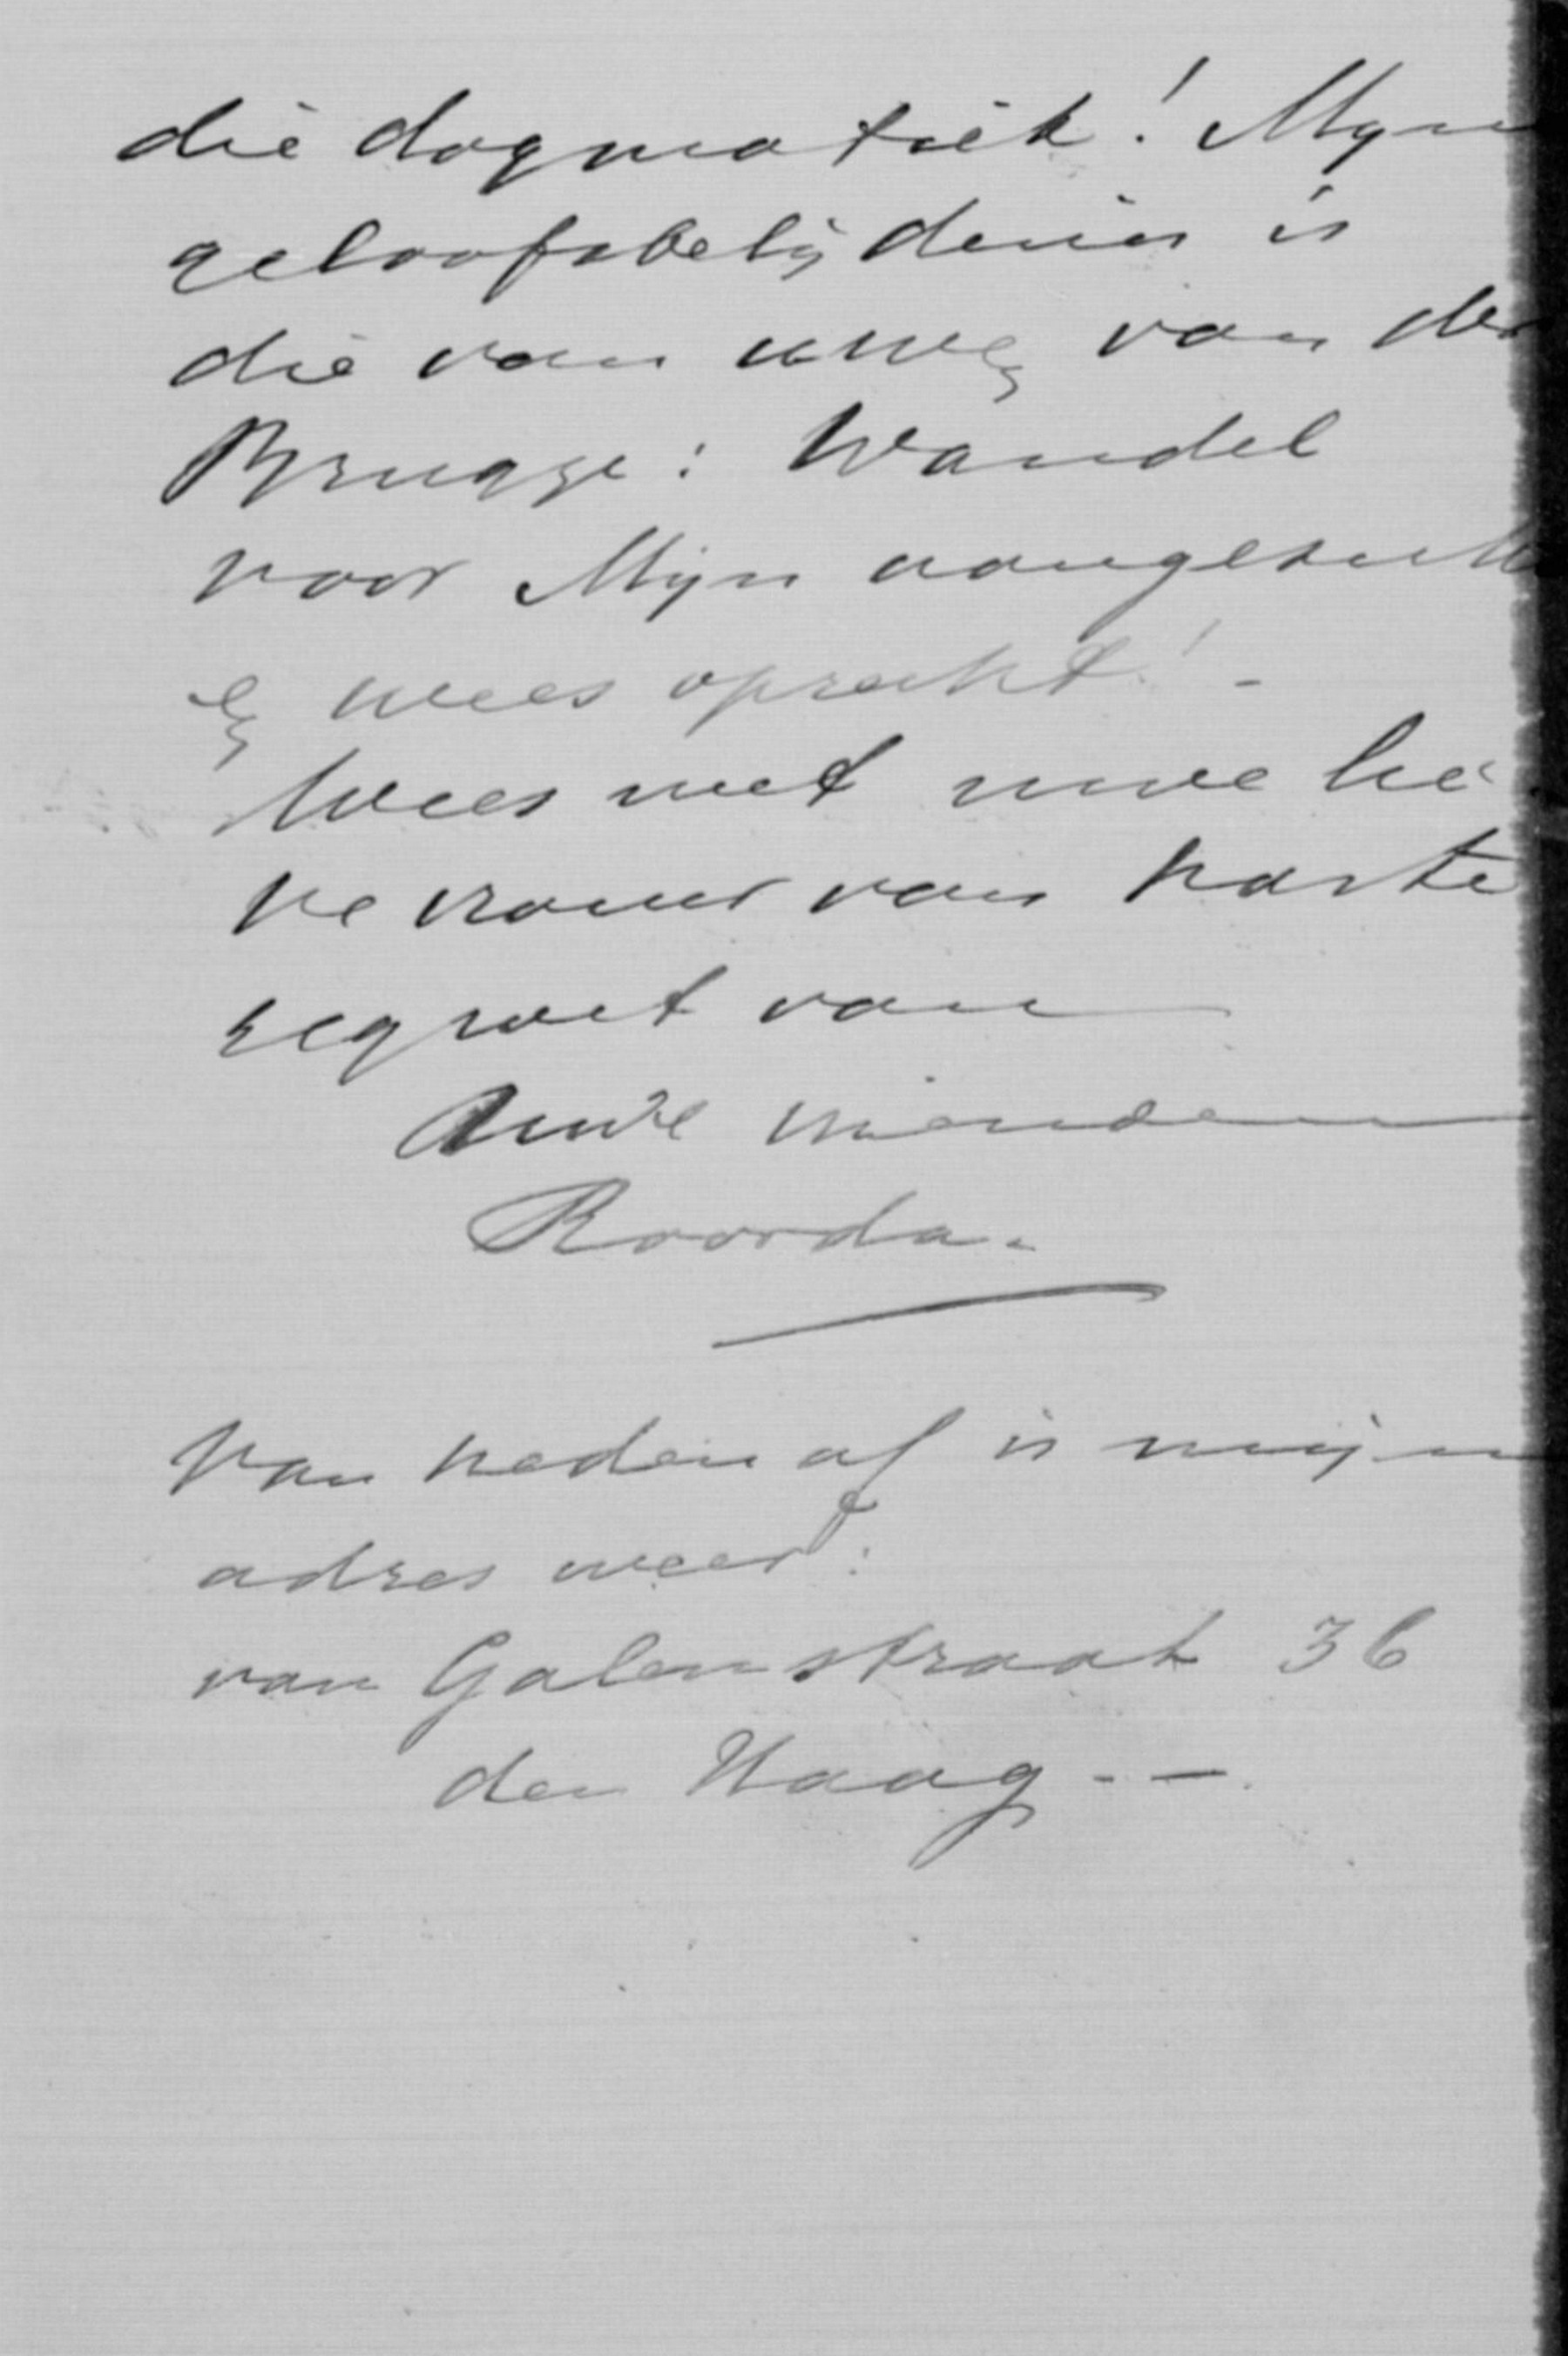 die dogmatiek! Mijn
geloofsbelijdenis is
die van uwen van der
Brugge: Wandel
voor Mijn aangezicht
en wees oprecht! -
Wees met uwe lie
ve vrouw van harte
gegroet van
Uwe vrienden
Roorda.
Van heden af is mijn
adres weer:
van Galenstraat 36
den Haag - -